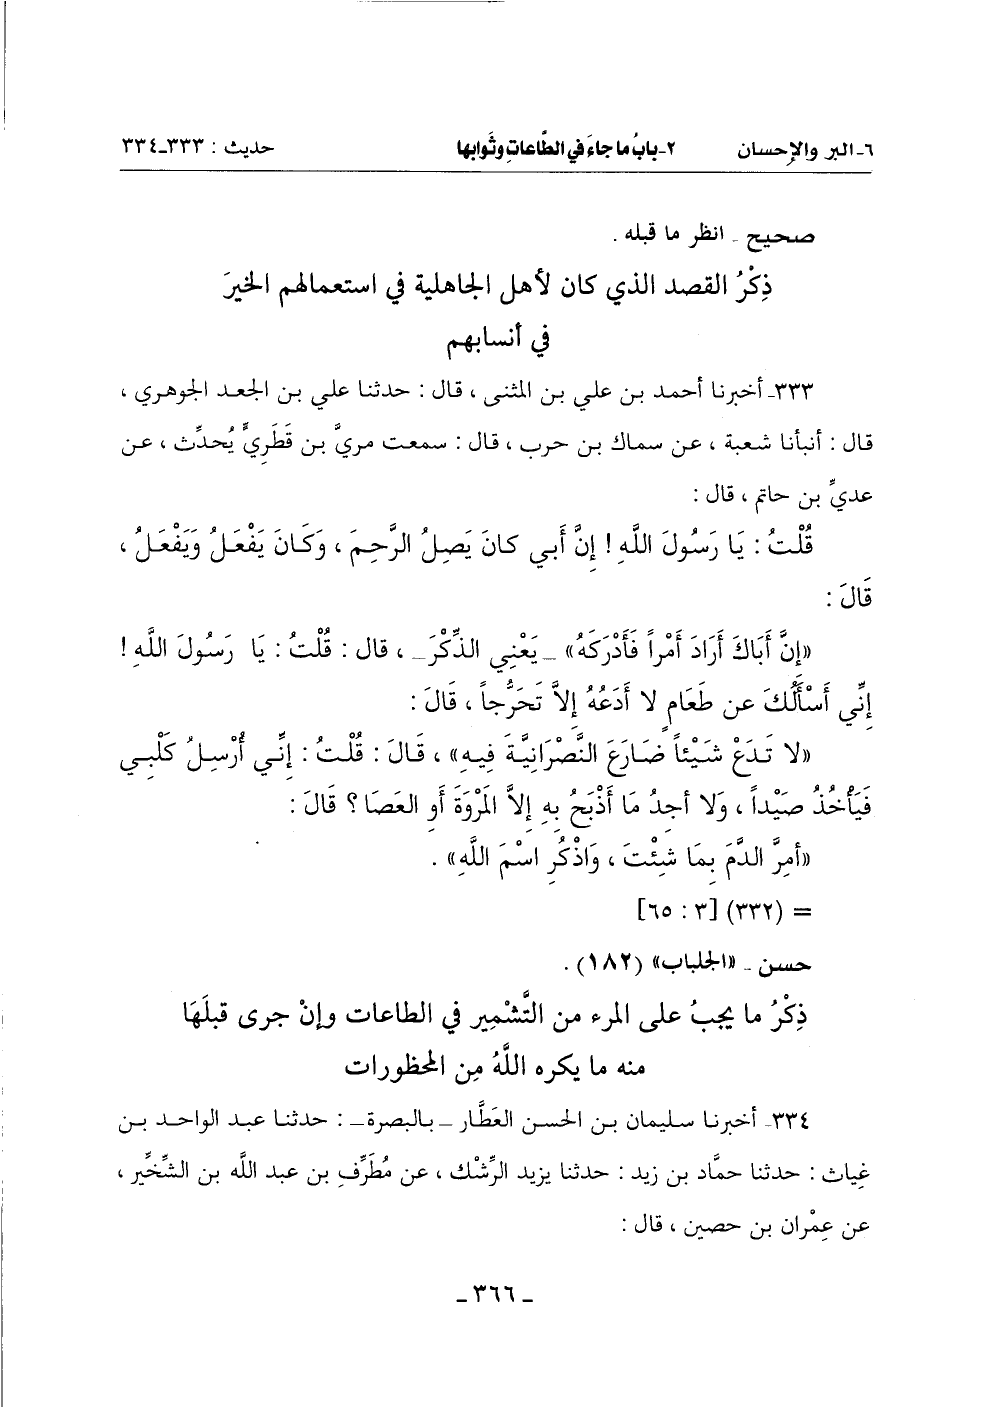 ٦- البر والإحسان ٢- بابُ ما جاءَ في الطَّاعاتِ وثَوابها حديث : ٣٣٣-٣٣٤
صحيح - انظر ما قبله .
ذِكْرُ القصد الذي كان لأهل الجاهلية في استعمالهم الخيرَ
في أنسابهم
٣٣٣- أخبرنا أحمد بن علي بن المثنى ، قال : حدثنا علي بن الجعد الجوهري ،
قال : أنبأنا شعبة ، عن سماك بن حرب ، قال : سمعت مريَّ بن قَطَرِيٍّ يُحدِّث ، عن
عديِّ بن حاتم ، قال :
قُلْتُ : يَا رَسُولَ اللَّهِ ! إِنَّ أَبي كانَ يَصِلُ الرَّحِمَ ، وَكَانَ يَفْعَلُ وَيَفْعَلُ ،
قَالَ :
«إِنَّ أَبَاكَ أَرَادَ أَمْراً فَأَدْرَكَهُ» – يَعْنِي الذِّكْرَ – ، قال : قُلْتُ : يَا رَسُولَ اللَّهِ !
إِنِّي أَسْأَلُكَ عن طَعَامٍ لا أَدَعُهُ إِلاَّ تَحَرُّجاً ، قَالَ :
«لا تَدَعْ شَيْئاً ضَارَعَ النَّصْرَانِيَّةَ فِيهِ» ، قَالَ : قُلْتُ : إِنِّي أُرْسِلُ كَلْبِي
فَيَأْخُذُ صَيْداً ، وَلا أجدُ مَا أَذْبَحُ بِهِ إِلاَّ المَرْوَةَ أَوِ العَصَا ؟ قَالَ :
«أَمِرَّ الدَّمَ بِمَا شِئْتَ ، وَاذْكُرِ اسْمَ اللَّهِ» .
= (٣٣٢) [٣ : ٦٥]
حسن - «الجلباب» (١٨٢) .
ذِكْرُ ما يجبُ على المرء من التَّشْمِير في الطاعات وإنْ جرى قبلَهَا
منه ما يكره اللَّهُ مِن المحظورات
٣٣٤- أخبرنا سليمان بن الحسن العَطَّار – بالبصرة – : حدثنا عبد الواحد بن
غِياث : حدثنا حمَّاد بن زيد : حدثنا يزيد الرِّشْك ، عن مُطَرِّفِ بن عبد اللَّه بن الشِّخِّير ،
عن عِمْران بن حصين ، قال :
- ٣٦٦ -